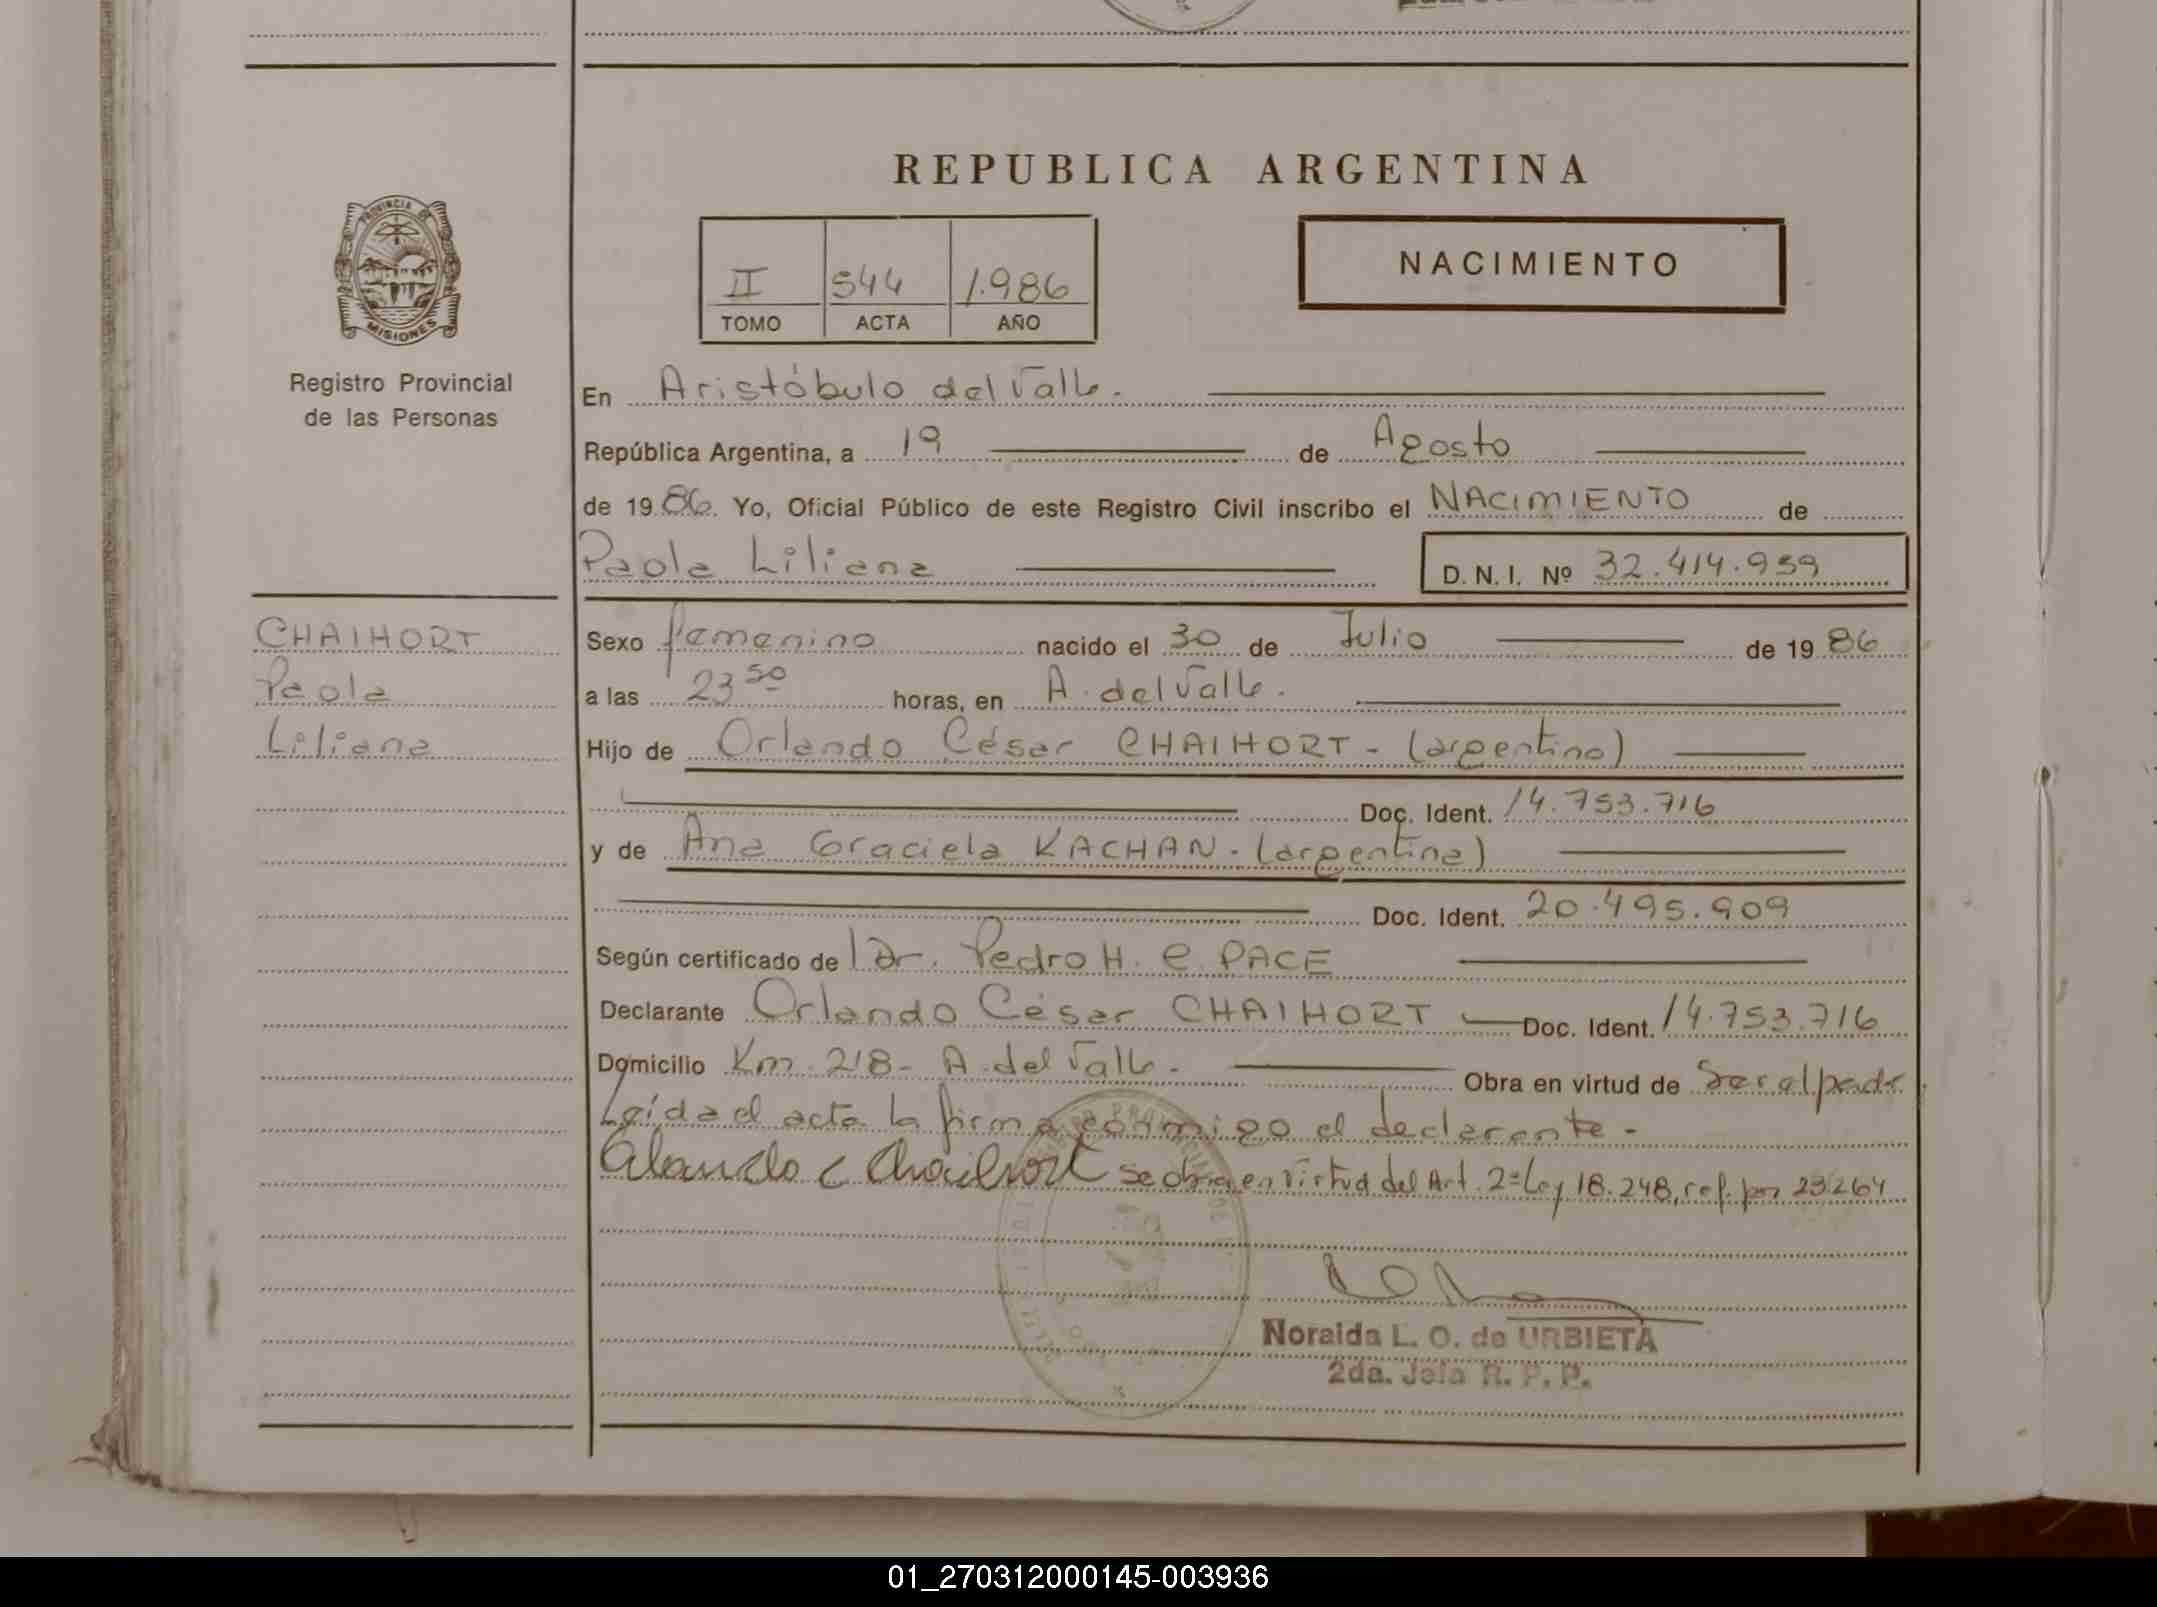 REPUBLICA ARGENTINA
PROVINCIA DE
MISIONES
Registro Provincial
de las Personas
II 544 1.986
TOMO ACTA AÑO
NACIMIENTO
En Aristóbulo del Valle.
República Argentina, a 19 de Agosto
de 1986. Yo, Oficial Público de este Registro Civil inscribo el NACIMIENTO de
Paola Liliana D.N.I. Nº 32.414.959
CHAIHORT
Paola
Liliana
Sexo femenino nacido el 30 de Julio de 1986
a las 23 50 horas, en A. del Valle.
Hijo de Orlando César CHAIHORT - (argentino)
Doc. Ident. 14.753.716
y de Ana Graciela KACHAN - (argentina)
Doc. Ident. 20.495.909
Según certificado de l Dr. Pedro H. C. PACE
Declarante Orlando César CHAIHORT Doc. Ident. 14.753.716
Domicilio Km. 218 - A. del Valle. Obra en virtud de Ser el padre
Leída el acta la firma conmigo el declarante -
Orlando C Chaihort se obra en virtud del Art. 2º Ley 18.248, ref. por 23264
Noraida L. O. de URBIETA
2da. Jefa R. P. P.
01_270312000145-003936